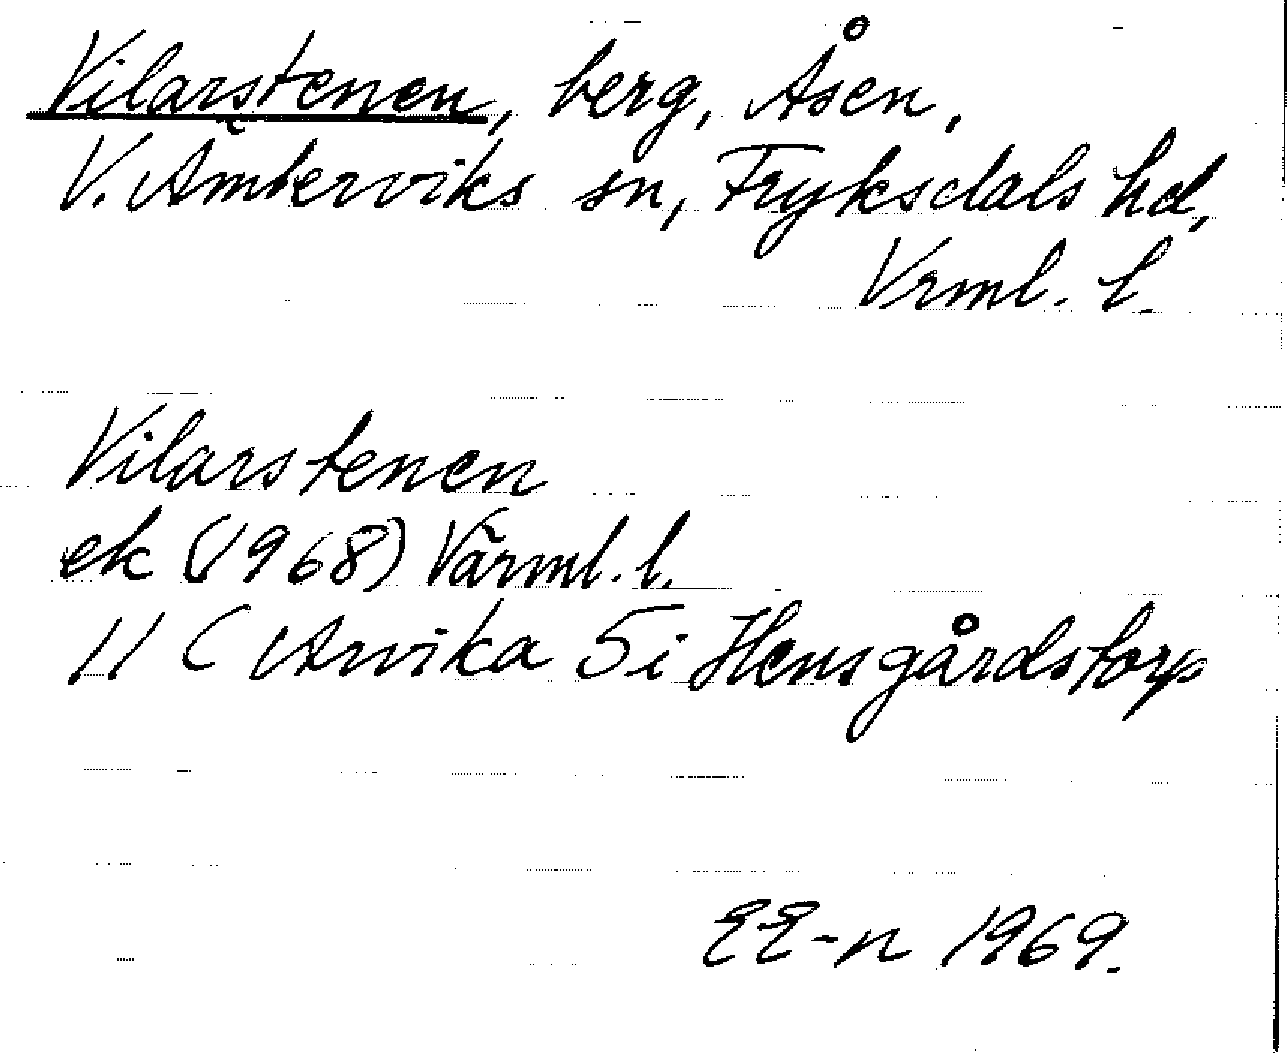 Vilarstenen, berg, Åsen,
V. Ämterviks sn, Fryksdals hd,
Vrml. l.
Vilarstenen
ek (1968) Värml. l.
11 C Arvika 5i Hensgårdstorp
EE-n 1969.